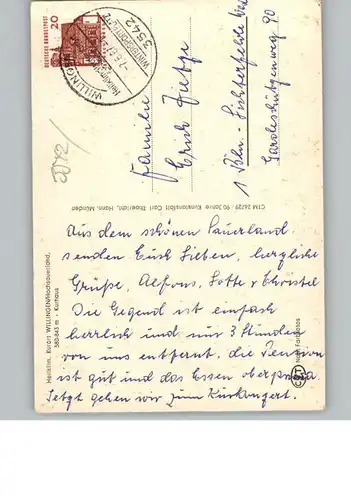 DEUTSCHE BUNDESPOST
20
3542
WILLINGEN
Heilklimatischer
Familie
Erich Tietze
1 Bln.-Lichterfelde West
Gardeschützenweg 90
CTM 26/29 / 90 Jahre Kunstanstalt Carl Thoericht, Hann. Münden
Heilklim. Kurort WILLINGEN/Hochsauerland,
580-843 m - Kurhaus
Aus dem schönen Sauerland
senden Euch Lieben, herzliche
Grüße, Alfons, Lotte + Christel
Die Gegend ist einfach
herrlich und nur 3 Stunden
von uns entfernt. die Pension
ist gut und das Essen oberprima.
Jetzt gehen wir zum Kurkonzert.